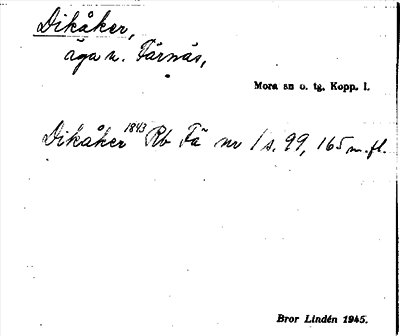 Dikåker,
äga n. Färnäs,
Mora sn o. tg. Kopp. l.
Dikåker 1843 Rb Fä nr 1 s. 99, 165 m. fl.
Bror Lindén 1945.